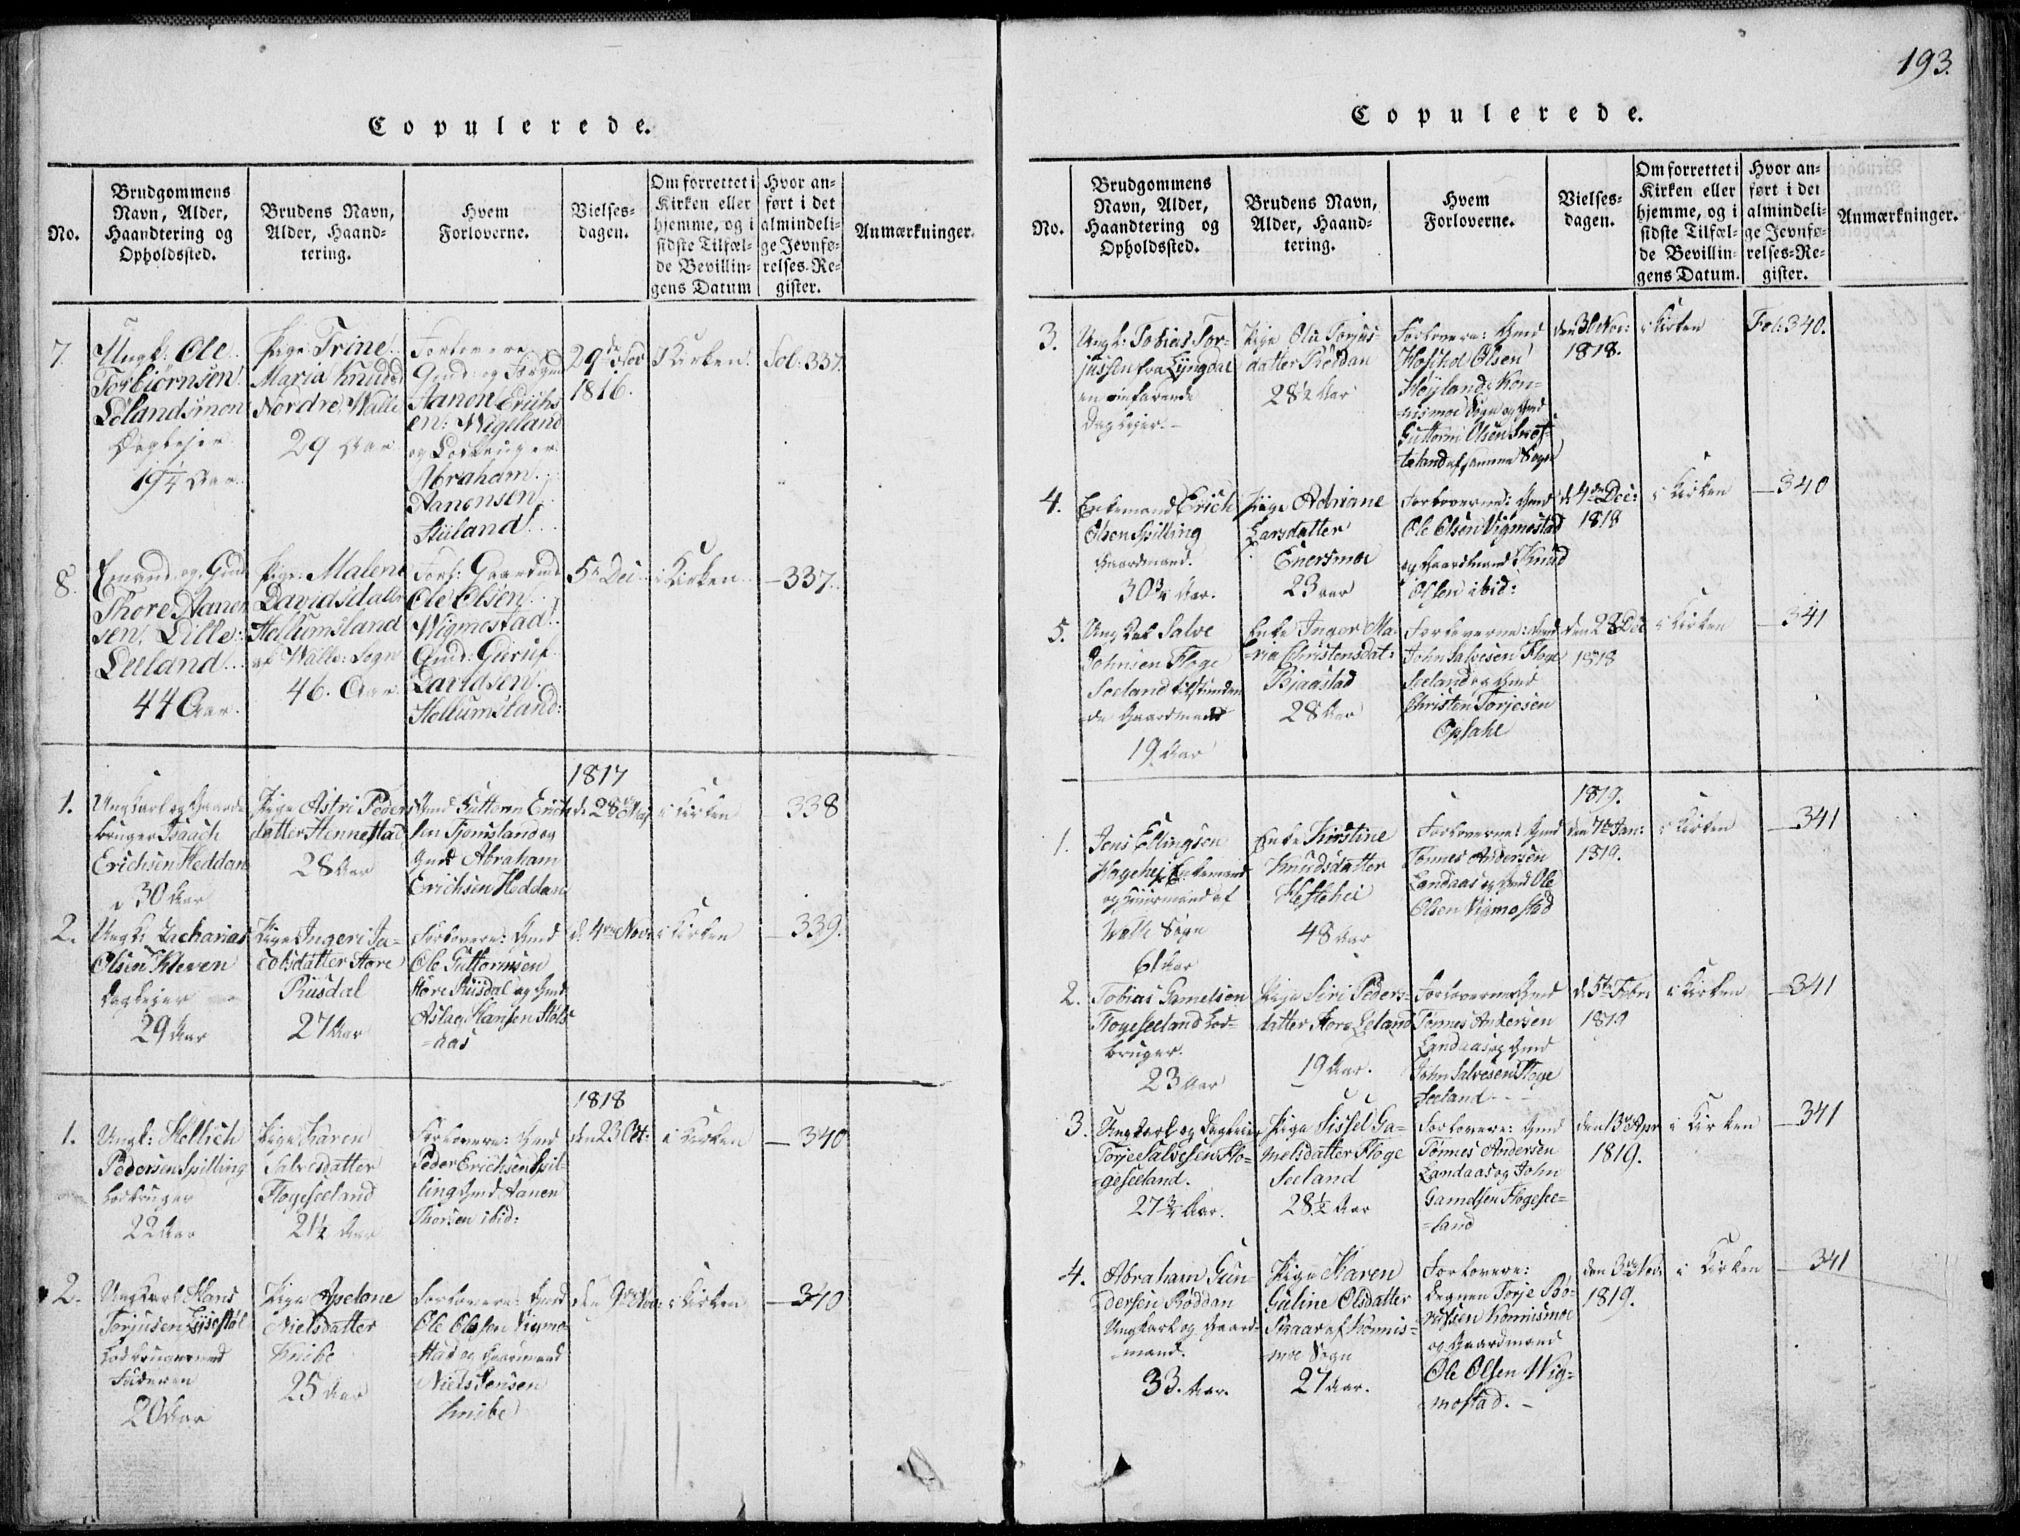 193.
Copulerede.
No.
Brudgommens
Navn, Alder,
Haandtering og
Opholdssted.
Brudens Navn,
Alder, Haand-
tering.
Hvem
Forloverne.
Vielses-
dagen.
Om forrettet i
Kirken eller
hjemme, og i
sidste Tilfæl-
de Bevillin-
gens Datum
Hvor an-
ført i det
almindeli-
ge Jevnfø-
relses-Re-
gister.
Anmærkninger.
7
Ungk: Ole
Torbiörnsen
Lölandsmon
Dagleier
19¼ Aar
Pige Trine
Maria Knuds
Nordre Walle
29 Aar
Forlovere
Gmd: og
Aanon Erichs
en: Wigeland
og Lodbruger
Abraham
Aanensen
29de
1816.
i Kirken.
Fol: 337
8.
Emand og Gmd
Thore Aanen
sen Lille
Leeland
44 Aar.
Pige: Malene
Davidsdatter
Hellumsland
af Walle: Sogn
46. Aar.
Forl: Gaardmd
Ole Olsen
Wigmostad
Gmd:
Davidsen
Hellumsland:
5te Dec
i Kirken
-337.
1817
1.
Ungkarl og Gaard
bruger Isaach
Erichsen Heddan
30 Aar
Pige Astri Peders
datter Hennestad
28 Aar
Gmd Guttorm Erich
sen Tjomsland og
Gmd Abraham
Erichsen Heddan
d: 28de Maj
i Kirken
338
2.
Ungk: Zacharias
Olsen Kleven
Dagleier
29 Aar
Pige Ingeri Ja-
cobsdatter Store
Riisdal
27 Aar
Forlovere: Gmd
Ole Guttormsen
Store Riisdal og Gmd
Aslag Hansen Hols
-aas
d: 4de Nov:
i Kirken
- 339.
1818
1.
Ungk:
Pedersen Spilling
Lodbruger
22 Aar
Pige Karen
Salvesdatter
Flogeseeland
21½ Aar
Forlovere: Gmd
Peder Erichsen Spil-
ling Gmd Aanen
Thorsen ibid:
den 23 Oct:
i Kirken
- 340
2.
Ungkarl Hans
Torjusen
Lodbruger med
Faderen
20 Aar
Pige Apelone
Nielsdatter
Knibe
25 Aar
Forlovere: Gmd
Ole Olsen Vigmo-
stad og Gaardmand
Niels Jensen
Knibe
den 9de Nov
i Kirken
- 340
Copulerede.
No.
Brudgommens
Navn, Alder,
Haandtering og
Opholdssted.
Brudens Navn,
Alder, Haand-
tering.
Hvem
Forloverne.
Vielses-
dagen.
Om forrettet i
Kirken eller
hjemme, og i
sidste Tilfæl-
de Bevillin-
gens Datum.
Hvor an-
ført i det
almindeli-
ge Jevnfø-
relses-Re-
gister.
Anmærkninger.
3.
Ungk: Tobias Tor-
jussen fra Lyngdal
en omfarende
Dagleier. -
Pige Olu Torjus-
datter Röddan
28½ Aar
Forlovere: Gmd
Olsen
Höyland Kon-
nismoe Sogn og Gmd
Guttorm Olsen
af samme Sogn
den 30 Nov:
1818.
i Kirken
Fol: 340.
4.
Enkemand Erich
Olsen Spilling
Gaardmand.
30¾ Aar.
Pige Adriane
Larsdatter
Enersmoe
23 Aar
Forloverne: Gmd
Ole Olsen Vigmostad
og Gaardmand Knud
Olsen ibid:
d: 4de Dec:
1818
i Kirken
-340
5.
Ungkarl Salve
Johnsen Floge
Seeland tilstunden
de Gaardmand
19 Aar
Enke Inger Ma-
ria Christensdat:
Bjaastad
28 Aar
Forloverne: Gmd
John Salvesen Floge
Seeland og Gmd
Christen Torjesen
Opsahl
den 28 Dec
1818
i Kirken
- 341
1819.
1.
Jens Ellingsen
Hagehei Enkemand
og Huusmand af
Walle Sogn
61 Aar
Enke Kirstine
Knudsdatter
Heftehei
48 Aar
Forloverne: Gmd
Tönnes Andersen
Landaas og Gmd Ole
Olsen Vigmostad
den 7de Jan:
1819.
i Kirken
-341
2.
Tobias Gamelsen
Flogeseeland Lod-
bruger.
23 Aar
Pige Siri Peders-
datter Store Leland
19 Aar.
Forloverne Gmd
Tönnes Andersen
Landaas og Gmd
John Salvesen Floge
Seeland - -
d: 5te Febr:
1819
i Kirken
-341
3.
Ungkarl og Dagleier
Torje Salvesen Flo-
-geseeland.
27¾ Aar.
Pige Sissel Ga-
melsdatter Floge
Seeland
28½ Aar
Forlovere: Gmd
Tönnes Andersen
Landaas og John
Gamelsen Flogesee-
-land
den 13de Apr
1819.
i Kirken
- 341
4.
Abraham Gun-
dersen Röddan
Ungkarl og Gaard-
mand.
33. Aar.
Pige Karen
Guline Olsdatter
Skaar af Konnis-
moe Sogn
27 Aar.
Forlovere:
Degnen Torje Bö-
Konnismoe
og Gaardmand
Ole Olsen Wig-
mostad. -
den 3de Nov:
1819.
i Kirken
- 341